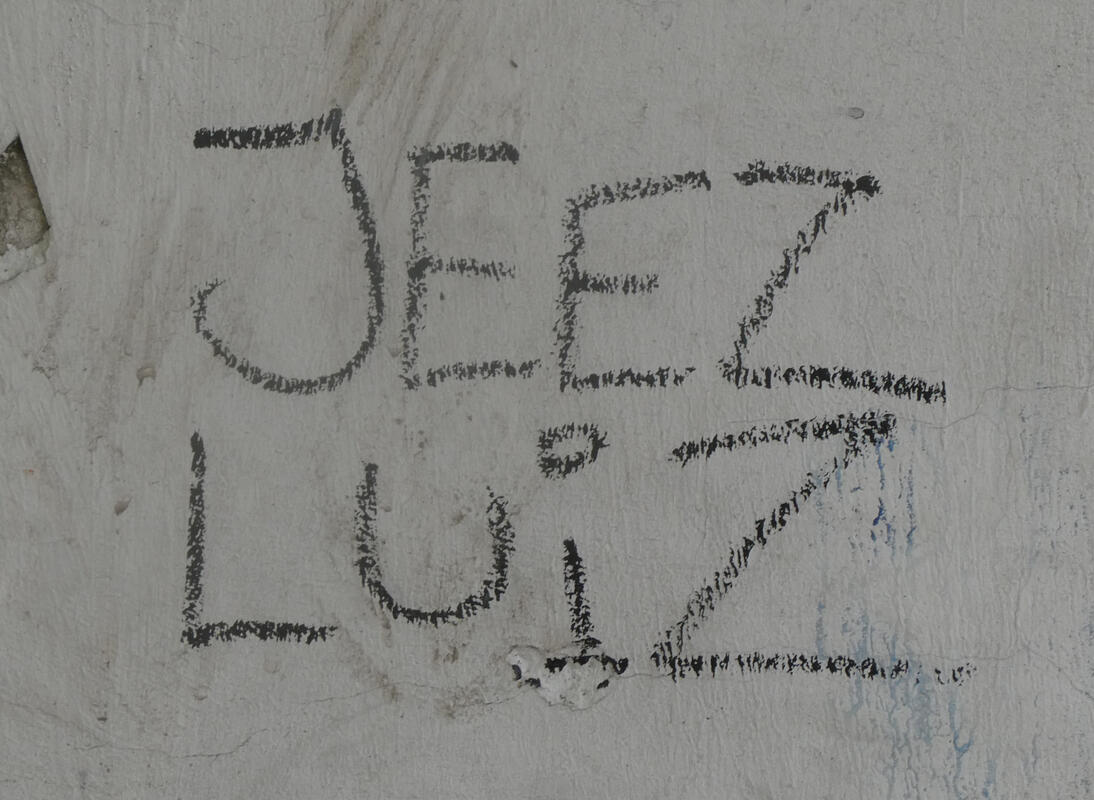 JEEZ
LUiZ